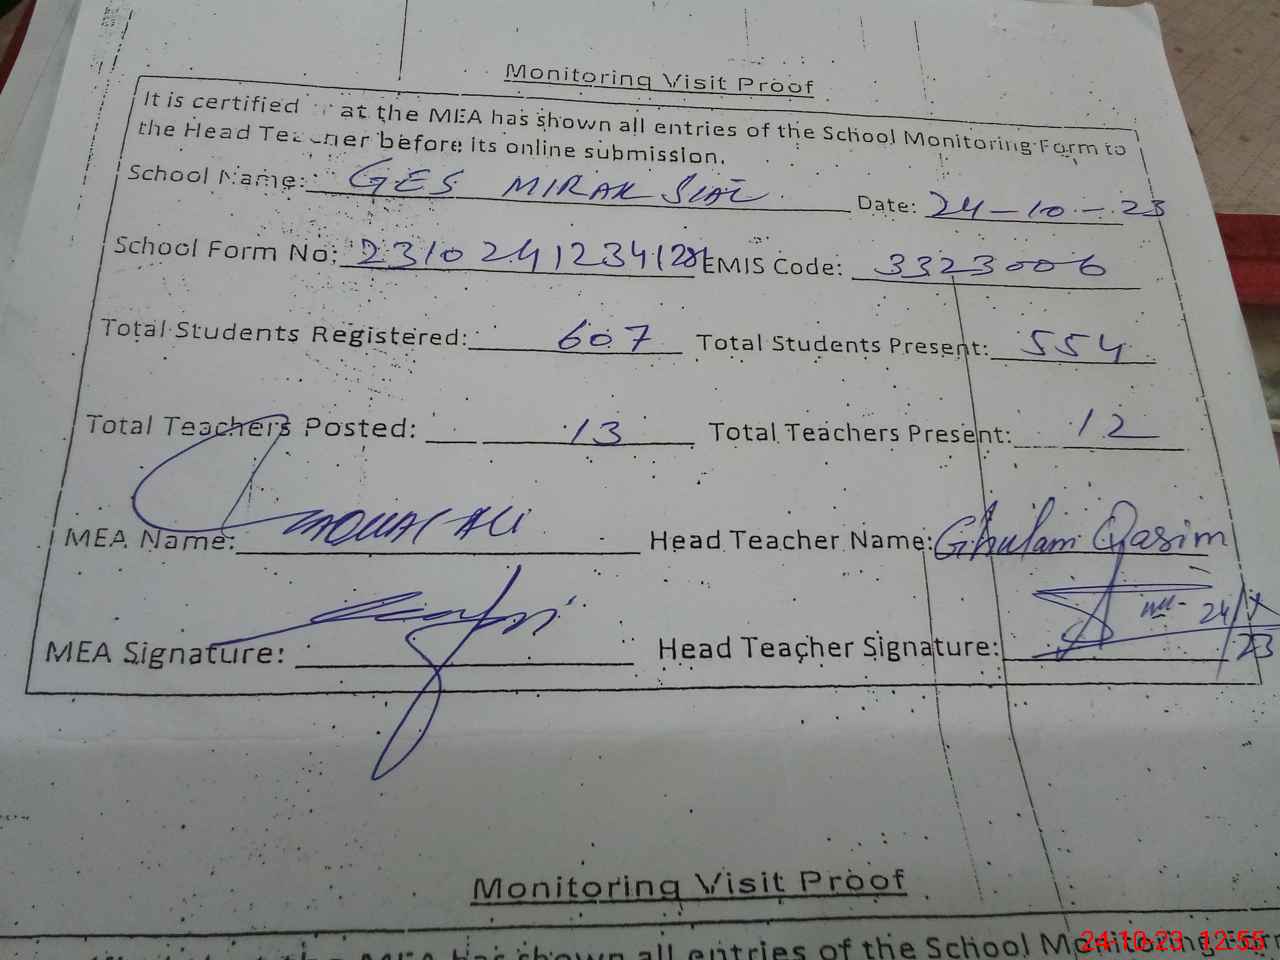 Monitoring Visit Proof
It is certified at the MEA has shown all entries of the School Monitoring Form to
the Head Teacher before its online submission.
School Name: GES MIRAK SIAL Date: 24-10-23
School Form No: EMIS Code: 3323006
Total Students Registered: 607 Total Students Present: 554
Total Teachers Posted: 13 Total Teachers Present: 12
MEA Name: ALI Head Teacher Name: Ghulam Qasim
MEA Signature: Head Teacher Signature: 24/X/23
Monitoring Visit Proof
MEA has shown all entries of the School Monitoring Form
24.10.23 12:55